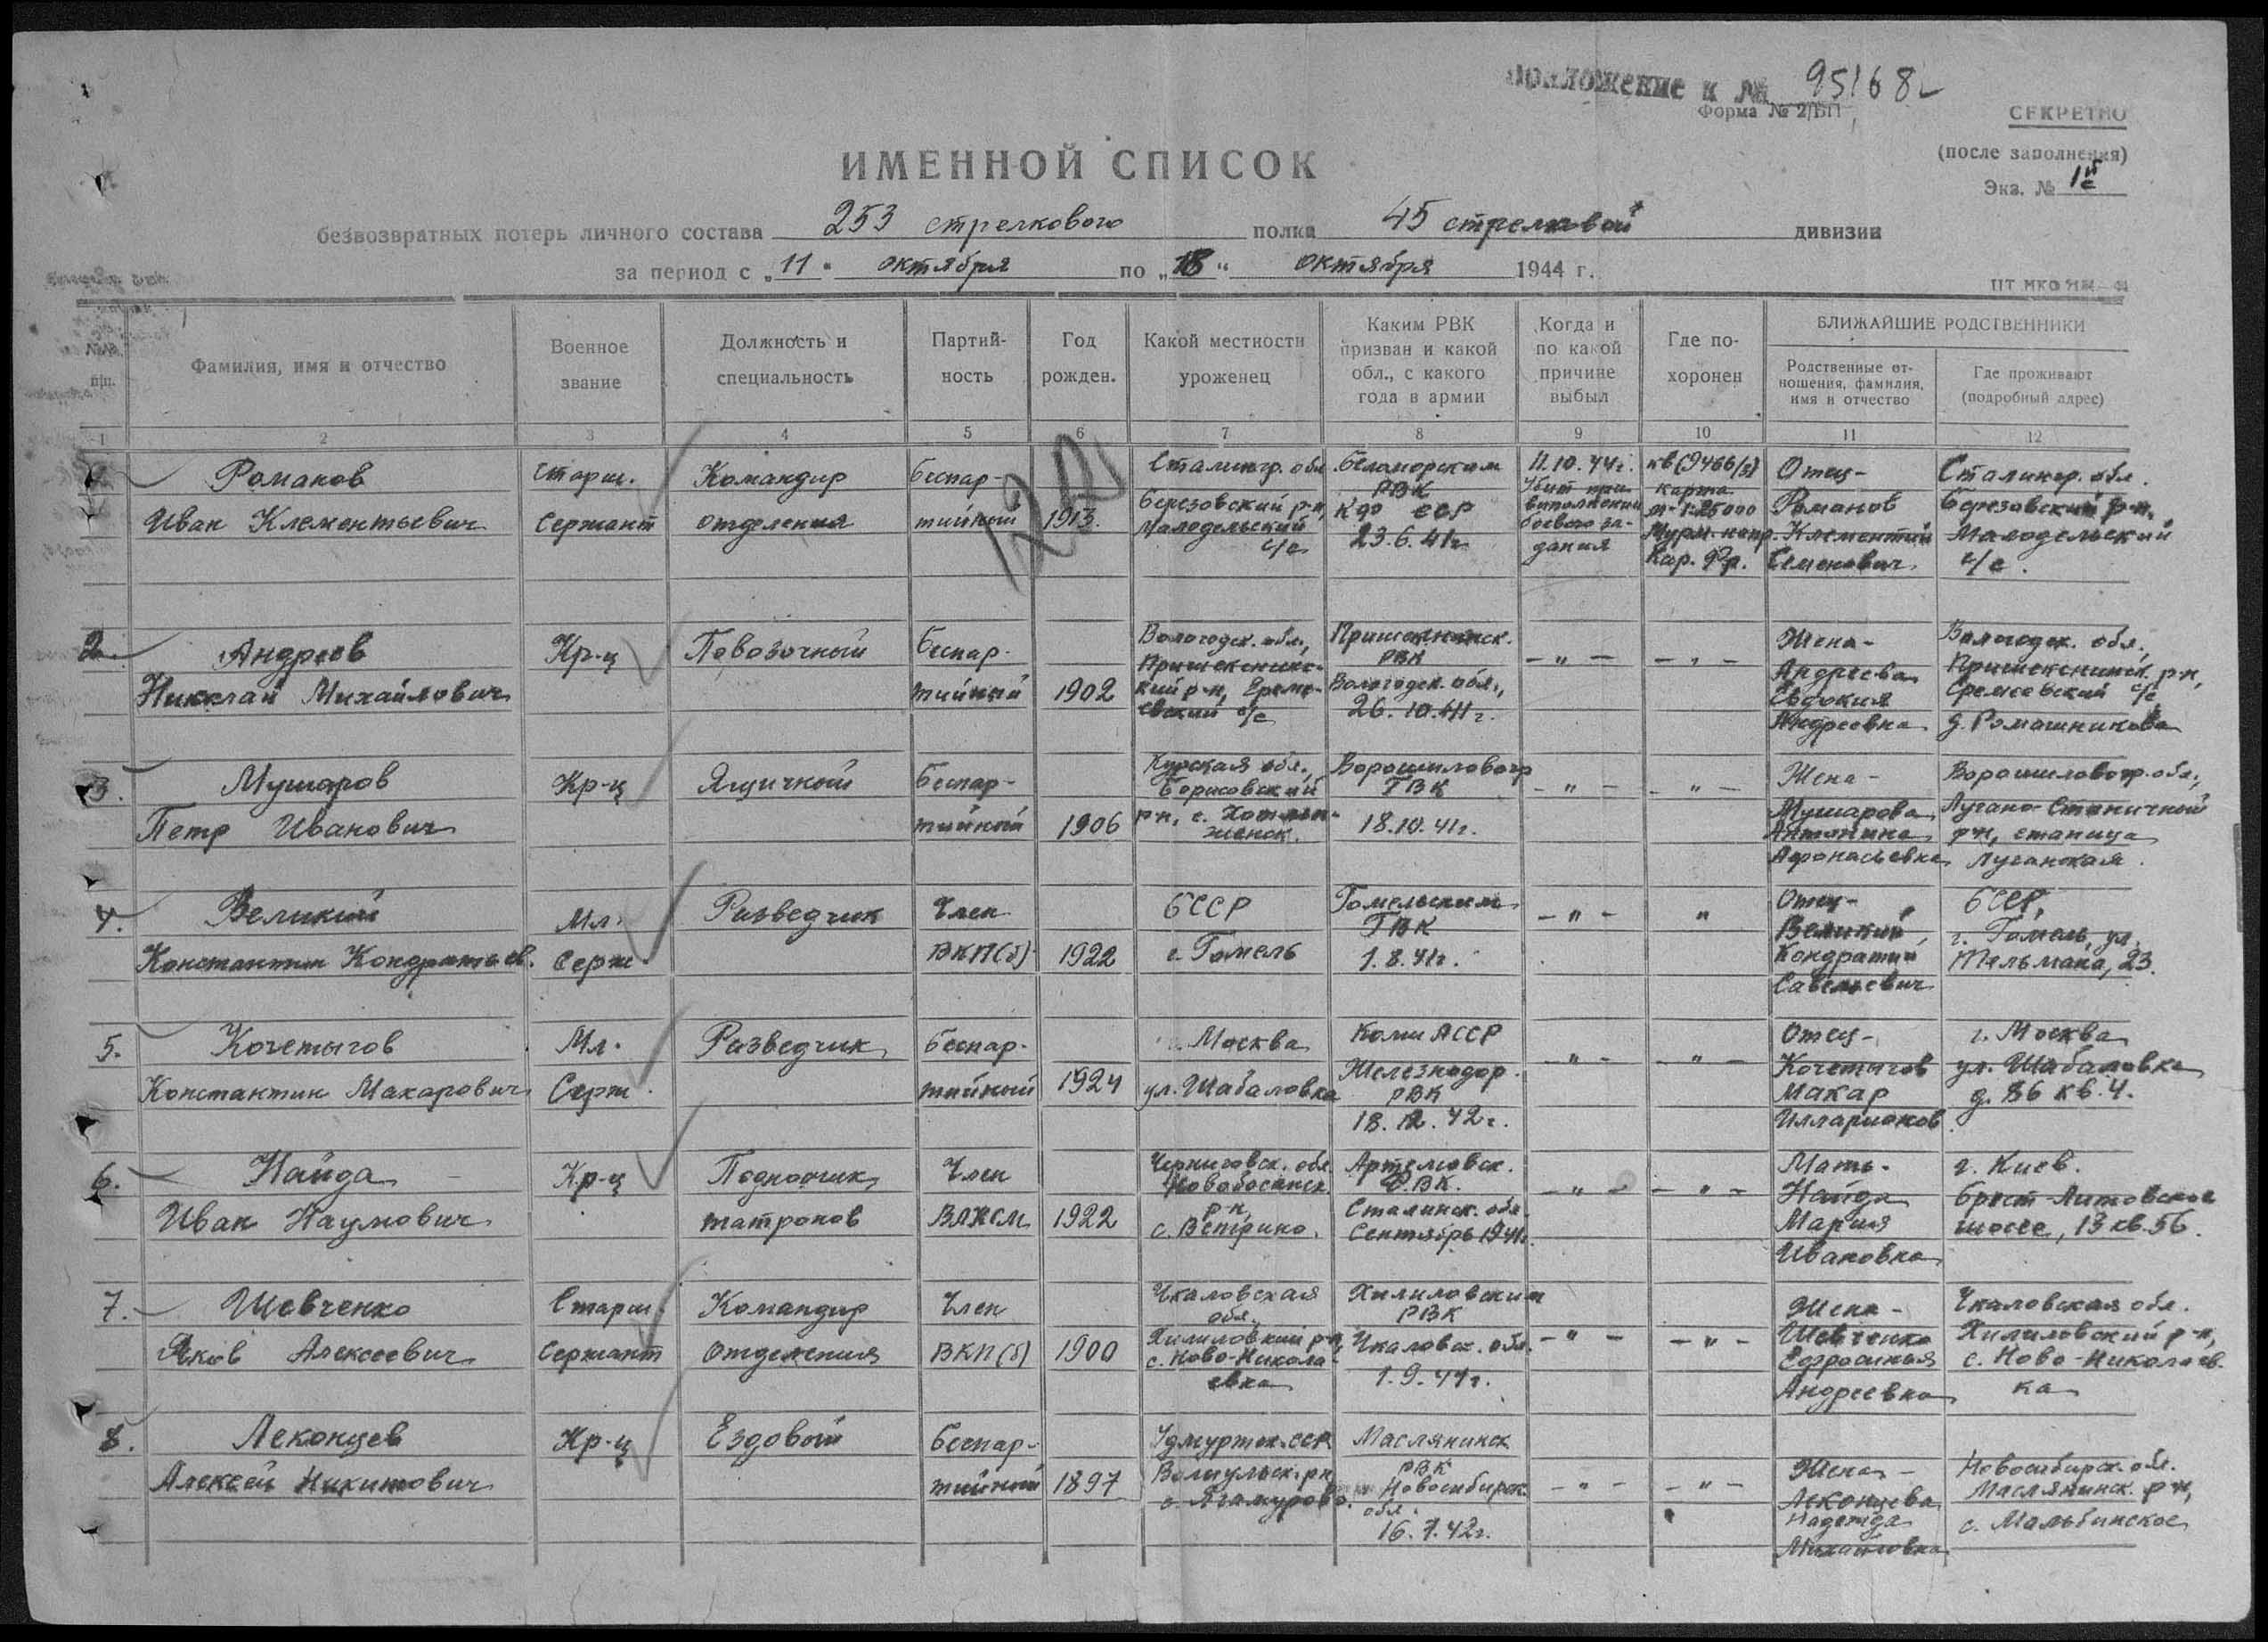 Приложение к № 95168
Форма № 2/БП
СЕКРЕТНО
(после заполнения)
Экз. № 1
ИМЕННОЙ СПИСОК
безвозвратных потерь личного состава 253 стрелкового полка 45 стрелковой дивизии
за период с „11" октября по „18" октября 1944 г.
п/п.
Фамилия, имя и отчество
Военное звание
Должность и специальность
Партий-ность
Год рожден.
Какой местности уроженец
Каким РВК призван и какой обл., с какого года в армии
Когда и по какой причине выбыл
Где по-хоронен
БЛИЖАЙШИЕ РОДСТВЕННИКИ
Родственные от-ношения, фамилия, имя и отчество
Где проживают (подробный адрес)
1 2 3 4 5 6 7 8 9 10 11 12
Романов Иван Клементьевич
Старш. Сержант
Командир отделения
Беспар-тийный
1913.
Сталингр. обл. Березовский р-н, Малодельский с/с
Беломорским РВК К ФССР 23.6.41г
11.10.44г. Убит при выполнении боевого за-дания
кв (9466/) карта м-1:25000 Мурм. напр. Кар. Фр.
Отец- Романов Клементий Семенович.
Сталингр. обл. Березовский р-н, Малодельский с/с.
2. Андреев Николай Михайлович
Кр-ц
Повозочный
Беспар-тийный
1902
Вологодск. обл., Пришекснинс-кий р-н, Ереме-евский с/с
Пришекснинск. РВК Вологодск. обл., 26.10.41г.
- " -
- " -
Жена- Андреева Евдокия Андреевна
Вологодск. обл., Пришекснинск. р-н, Еремеевский с/с д. Ромашниково
3. Мушаров Петр Иванович
Кр-ц
Ящичной
Беспар-тийный
1906
Курская обл., Борисовский р-н, с.
Ворошиловогр ГВК 18.10.41г.
- " -
- " -
Жена- Мушарова Антонина Афонасьевна
Ворошиловогр. обл., Лугано-Станичной р-н, станица Луганская.
4. Великий Константин Кондратьев.
Мл. Серж
Разведчик
Член ВКП(б)
1922
БССР г. Гомель
Гомельским ГВК 1.8.41г.
- " -
"
Отец- Великий Кондратий Савельевич
БССР, г. Гомель, ул. Тельмана, 23.
5. Кочетыгов Константин Макарович
Мл. Серж
Разведчик
Беспар-тийный
1924
г. Москва ул. Шабаловка
Коми АССР Железнодор. РВК 18.12.42г.
- " -
- " -
Отец- Кочетыгов Макар Илларионов.
г. Москва ул. Шабаловка д. 86 кв. 4.
6. Найда Иван Наумович
Кр-ц
Подносчик патронов
Член ВЛКСМ
1922
Черниговск. обл. Новобасанск. р-н,
Артемовск. РВК. Сталинск. обл. Сентябрь 1941г.
- " -
- " -
Мать- Найда Мария Ивановна
г. Киев. Брест-Литовское шоссе, 13 кв. 56.
7. Шевченко Яков Алексеевич
Старш. Сержант
Командир отделения
Член ВКП(б)
1900
Чкаловская обл. Хилиловский р-н, с. Ново-Никола-евка
Хилиловским РВК Чкаловск. обл. 1.9.41г.
- " -
- " -
Жена- Шевченко Ефросинья Андреевна
Чкаловская обл. Хилиловский р-н, с. Ново-Николаев-ка
8. Леконцев Алексей Никитович
Кр-ц
Ездовой
Беспар-тийный
1897
Удмуртск. ССР
Маслянинск РВК Новосибирск. обл. 16.7.42г.
- " -
- " -
Жена- Леконцева Надежда Михайловна
Новосибирск. обл. Маслянинск. р-н, с. Мальбинское